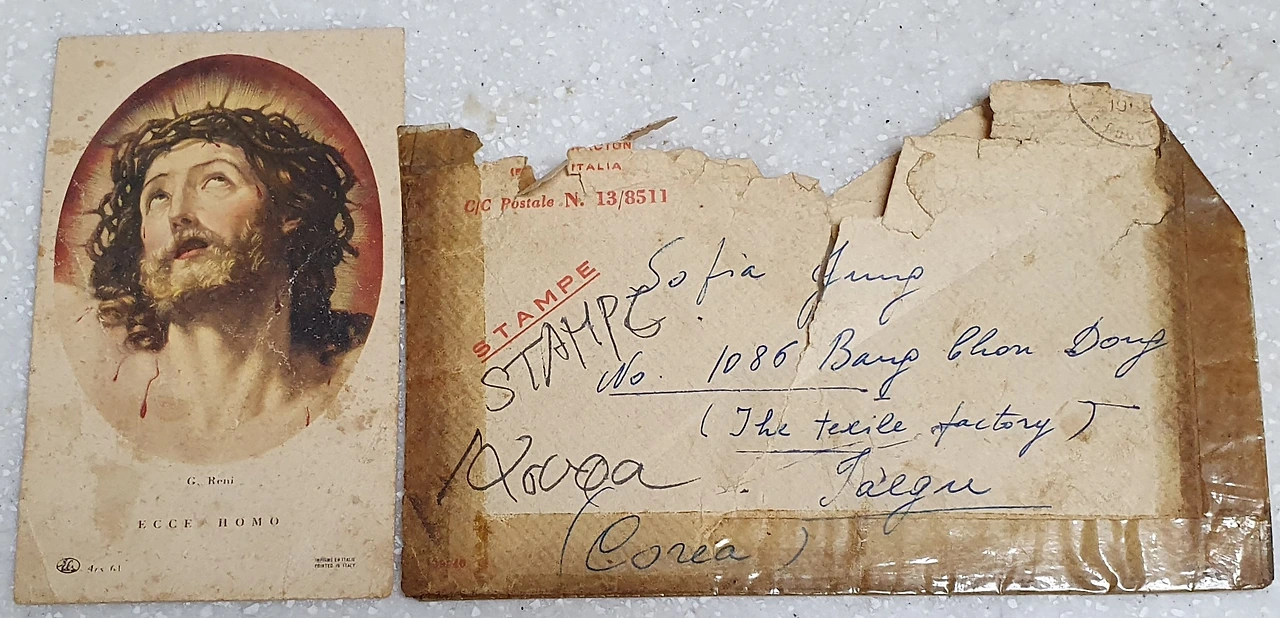 G. Reni
ECCE HOMO
Ars 61
IMPRIMÉ EN ITALIE
PRINTED IN ITALY
ITALIA
C/C Postale N. 13/8511
STAMPE
STAMPE
Sofia Jung
No. 1086 Bang Chon Dong
(The texile factory)
Taegu
Korea
(Corea)